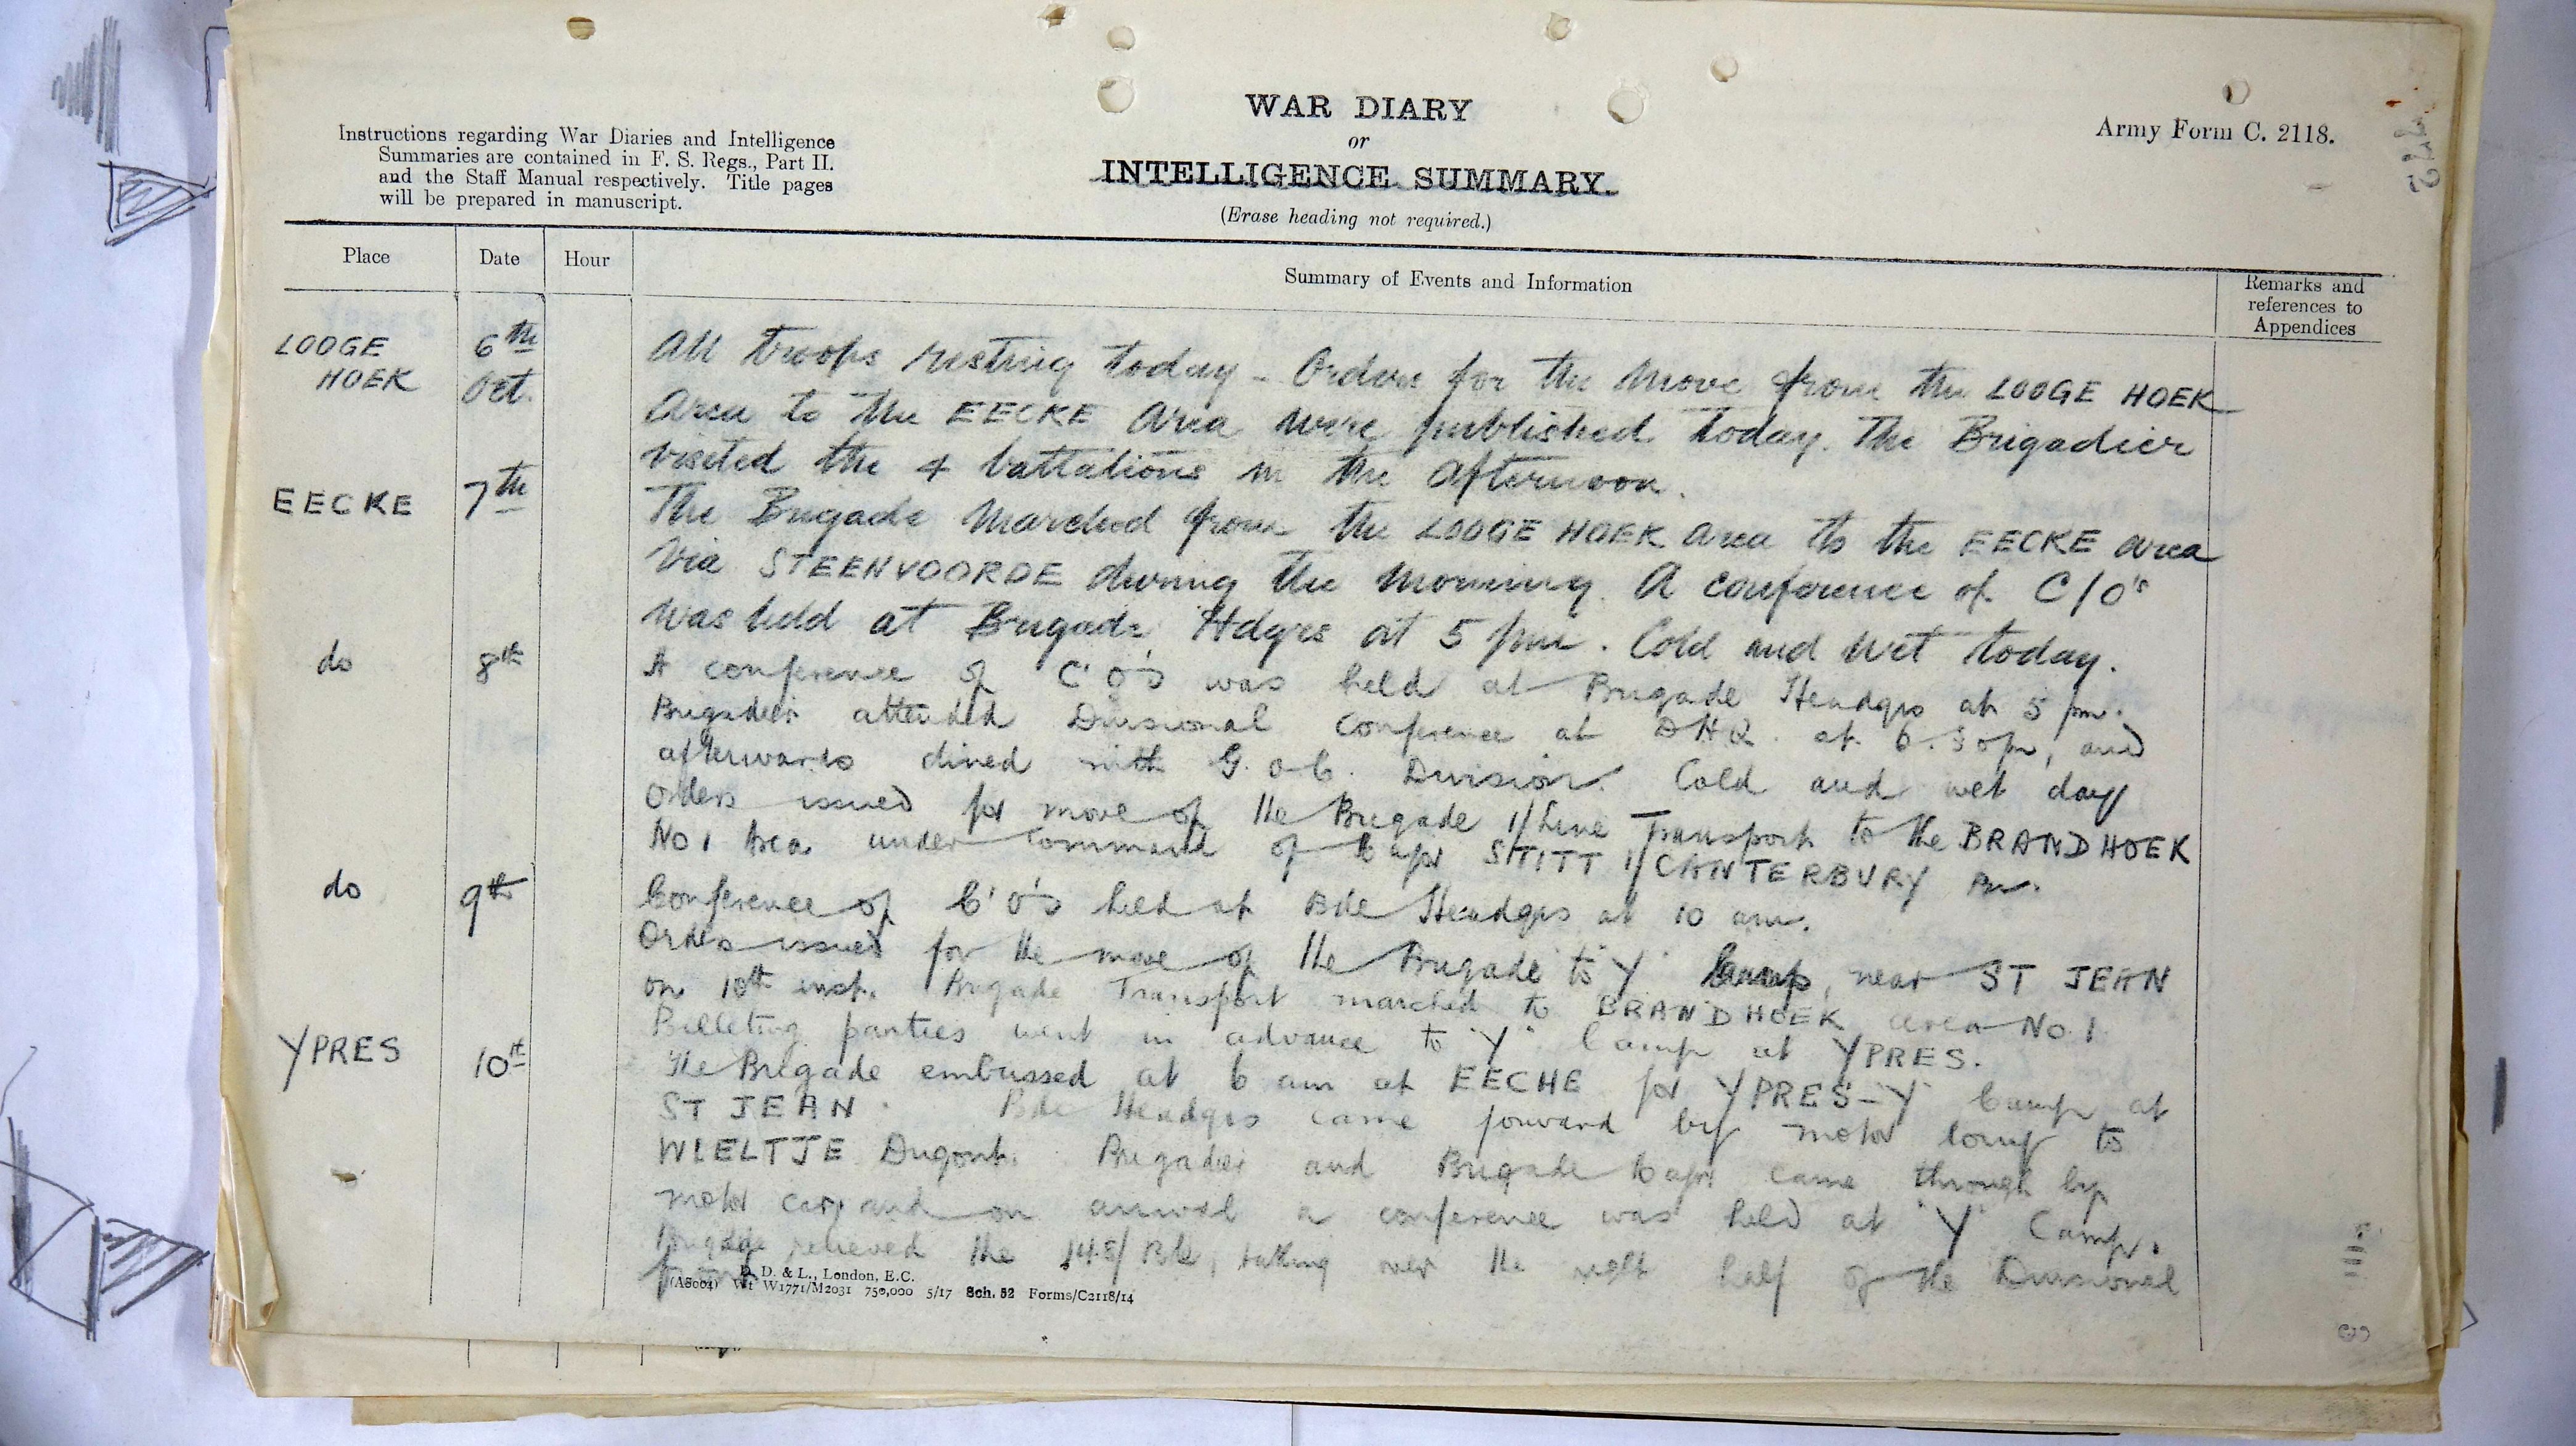 WAR DIARY
or
INTELLIGENCE SUMMARY.
(Erase heading not required.)
Army Form C. 2118.
Instructions regarding War Diaries and Intelligence
Summaries are contained in F. S. Regs., Part II.
and the Staff Manual respectively. Title pages
will be prepared in manuscript.
Place
Date
Hour
Summary of Events and Information
Remarks and
references to
Appendices
LOOGE
HOEK
6th
Oct.
All troops resting today – Orders for the move from the LOOGE HOEK
Area to the EECKE Area were published today. The Brigadier
visited the 4 battalions in the afternoon.
EECKE
7th
The Brigade marched from the LOOGE HOEK area to the EECKE area
via STEENVOORDE during the morning. A conference of C/O's
was held at Brigade Hdqrs at 5 pm. Cold and wet today.
do
8th
A conference of C'O's was held at Brigade Headqrs at 5 pm.
Brigadier attended Divisional Conference at DHQ. at 6.30pm, and
afterwards dined with G.O.C. Division. Cold and wet day
Orders issued for move of the Brigade 1/Line Transport to the BRANDHOEK
No 1 Area under Command of Capt STITT 1/CANTERBURY Bn.
do
9th
Conference of C'O's held at Bde Headqrs at 10 am.
Orders issued for the move of the Brigade to "Y" Camp, near ST JEAN
on 10th inst. Brigade Transport marched to BRANDHOEK area No. 1
Billeting parties went in advance to "Y" Camp at YPRES.
YPRES
10th
The Brigade embussed at 6 am at EECHE for YPRES – "Y" Camp at
ST JEAN. Bde Headqrs came forward by motor lorry to
WIELTJE Dugouts. Brigadier and Brigade Major came through by
motor car and on arrival a conference was held at "Y" Camp.
Brigade relieved the 148/Bde, taking over the right half of the Divisional
front
D. D. & L., London, E.C.
(A8004) Wt W1771/M2031 750,000 5/17 Sch. 52 Forms/C2118/14